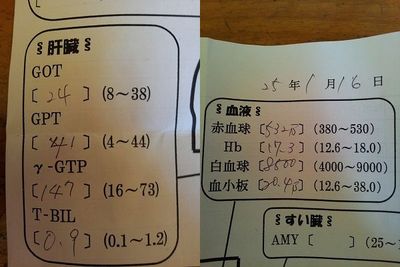 §肝臓§
GOT
[ 24 ] (8～38)
GPT
[ 41 ] (4～44)
γ-GTP
[ 147 ] (16～73)
T-BIL
[ 0.9 ] (0.1～1.2)
25年1月16日
§血液§
赤血球 [532万] (380～530)
Hb [17.3] (12.6～18.0)
白血球 [8500] (4000～9000)
血小板 [20.4万] (12.6～38.0)
§すい臓§
AMY [ ] (25～